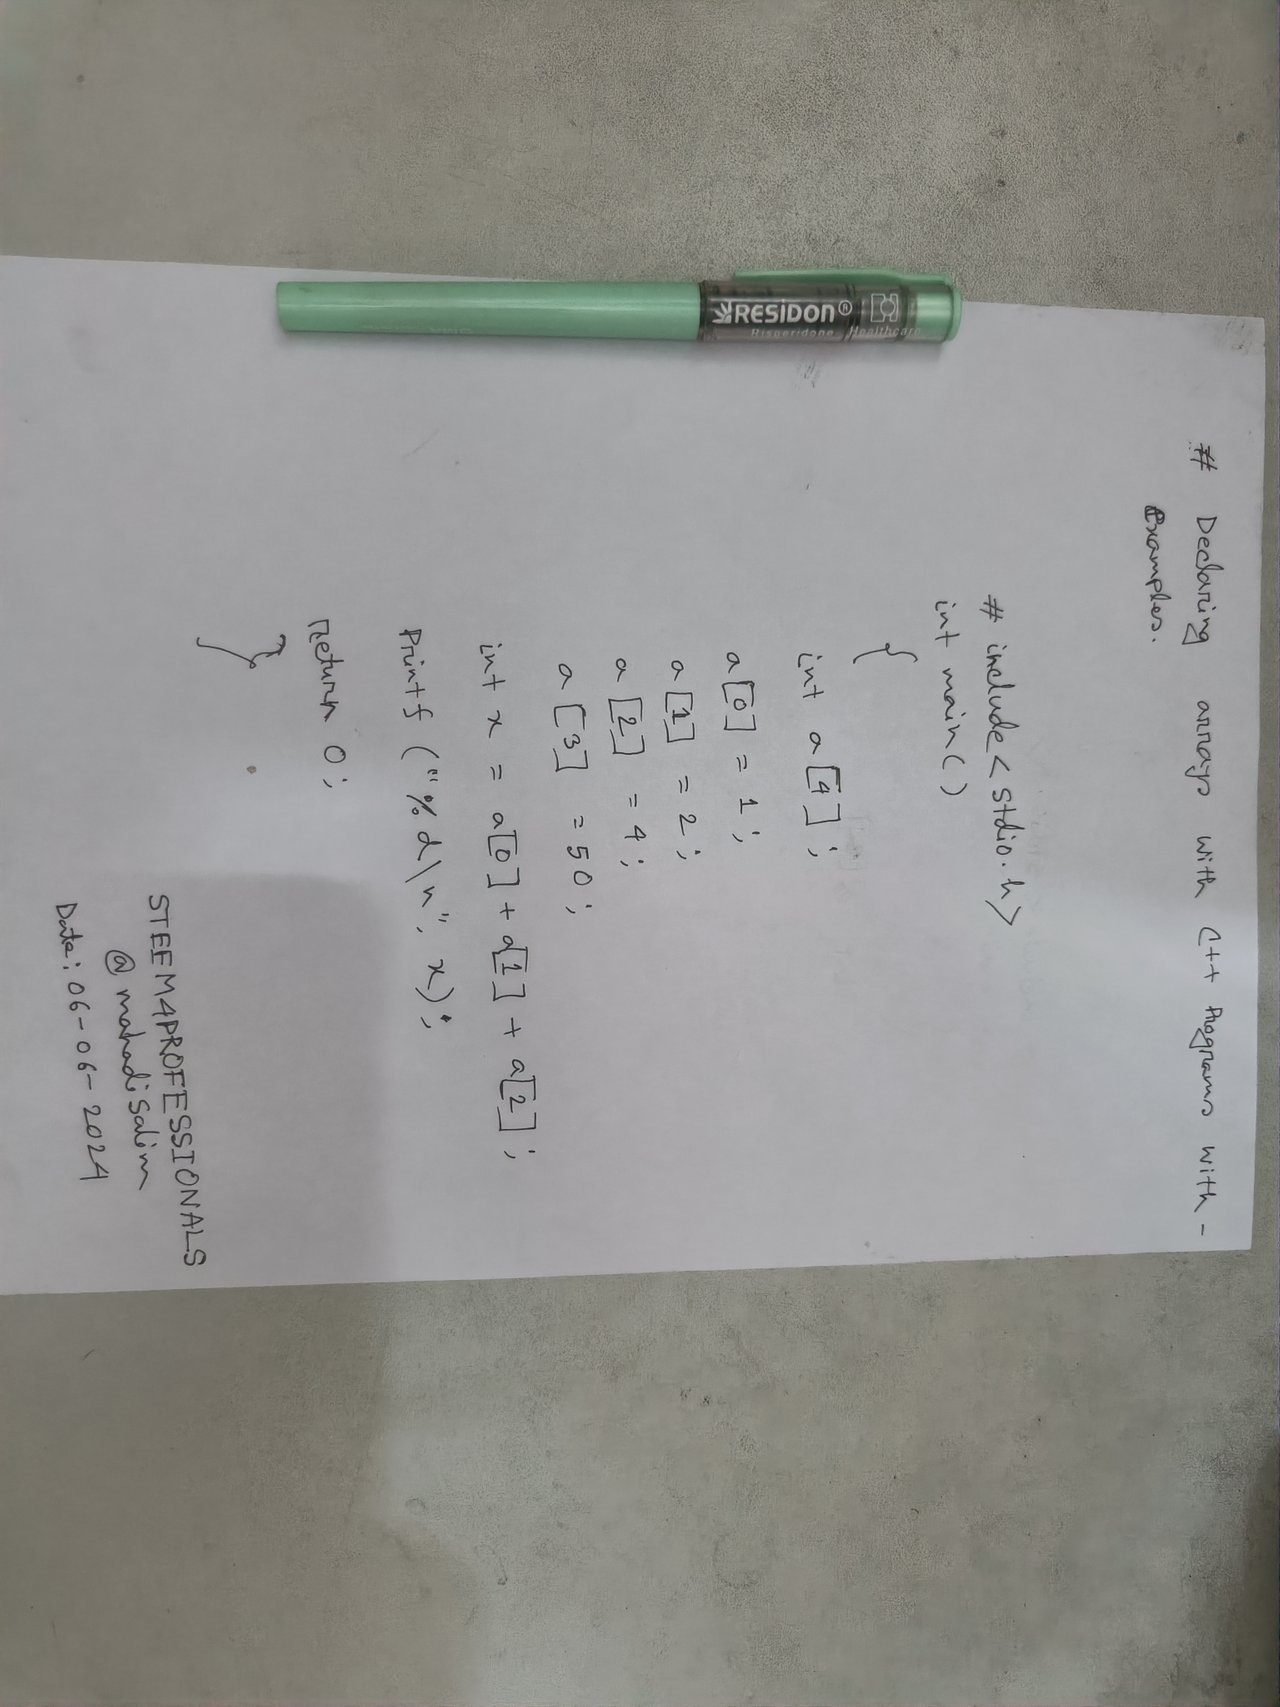 # Declaring arrays with C++ Programs with -
Examples.
# include < stdio.h>
int main()
{
int a[4];
a[0] = 1;
a[1] = 2;
a[2] = 4;
a[3] = 50;
int x = a[0] + a[1] + a[2];
Printf ("%d\n", x);
Return 0;
}
STEEM4PROFESSIONALS
@ mahadisalim
Date: 06-06-2024
RESIDON®
Risperidone Healthcare